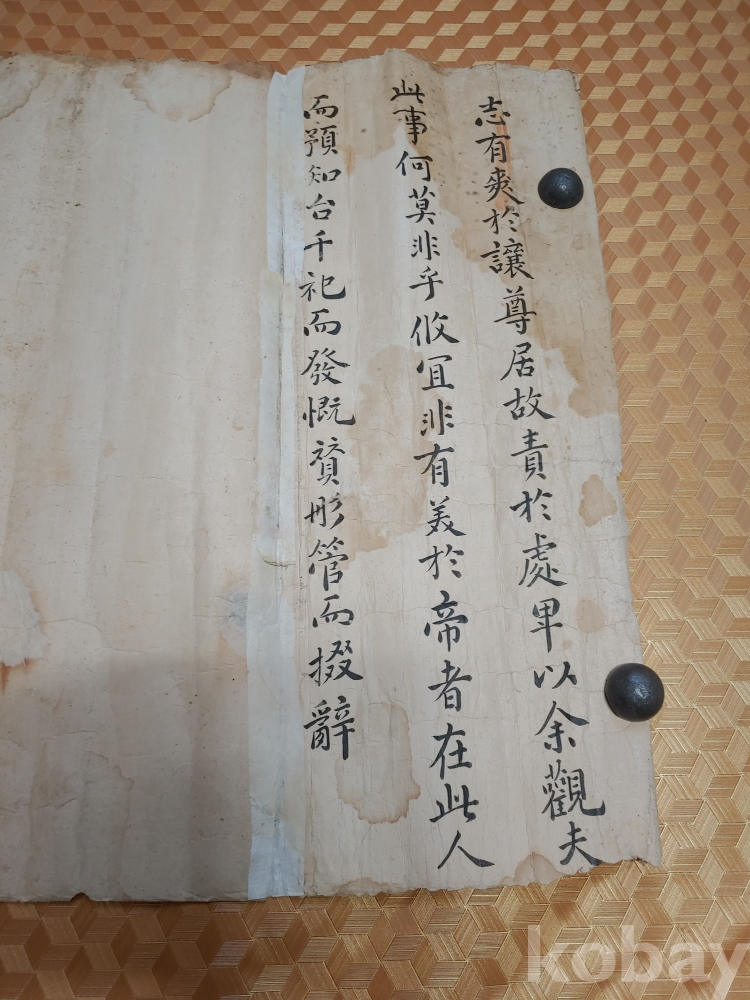 志有爽於讓尊居故責於處卑以余觀夫
此事何莫非乎攸宜非有美於帝者在此人
而預知台千祀而發慨賁彤管而掇辭
kobay